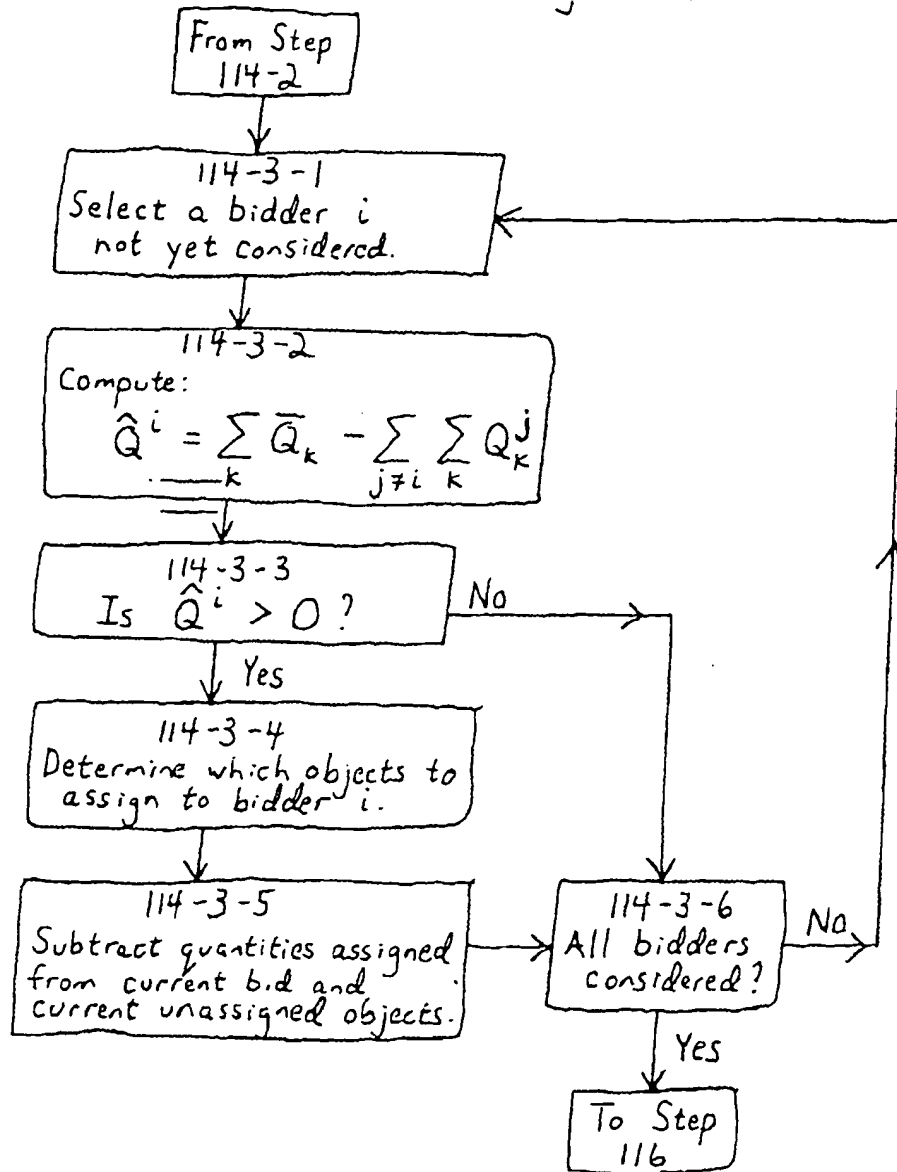 From Step
114-2
114-3-1
Select a bidder i
not yet considered.
114-3-2
Compute:
Q̂ i = ∑ Q̅ k - ∑ ∑ Q k j
k j≠i k
114-3-3
Is Q̂ i > 0 ?
No
Yes
114-3-4
Determine which objects to
assign to bidder i.
114-3-5
Subtract quantities assigned
from current bid and
current unassigned objects.
114-3-6
All bidders
considered?
No
Yes
To Step
116